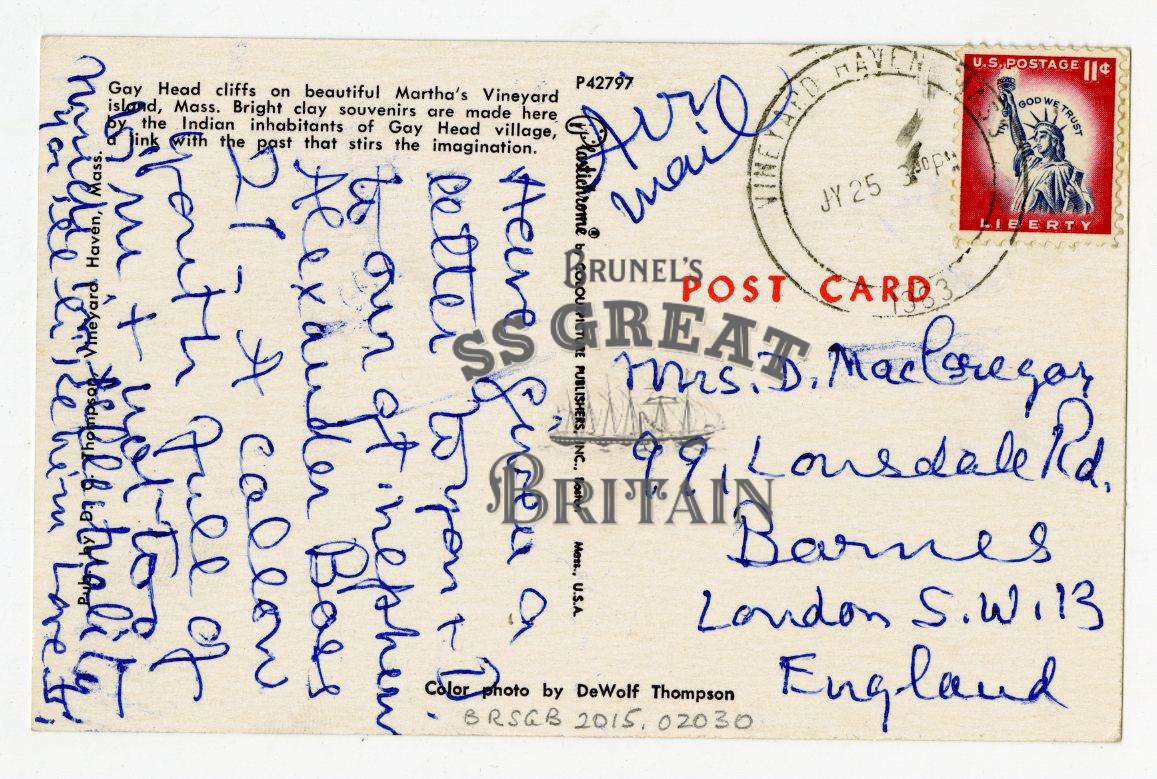 Gay Head cliffs on beautiful Martha's Vineyard
island, Mass. Bright clay souvenirs are made here
by the Indian inhabitants of Gay Head village,
a link with the past that stirs the imagination.
P42797
Pub. by D. G. Thompson, Vineyard Haven, Mass.
Have given a
letter to you + D
to our gt. nephew
Alexander Boas
21 - A callow
youth full of
+
you'll like him Love
Plastichrome® by COLOURPICTURE PUBLISHERS, INC., Boston Mass., U.S.A.
Color photo by DeWolf Thompson
BRSGB 2015.02030
Air
mail
VINEYARD HAVEN
JY 25 3 30 PM
1963
U.S. POSTAGE 11¢
IN GOD WE TRUST
LIBERTY
POST CARD
Mrs. D. MacGregor
99, Lonsdale Rd.
Barnes
London S.W.13
England
BRUNEL'S
SS GREAT
BRITAIN